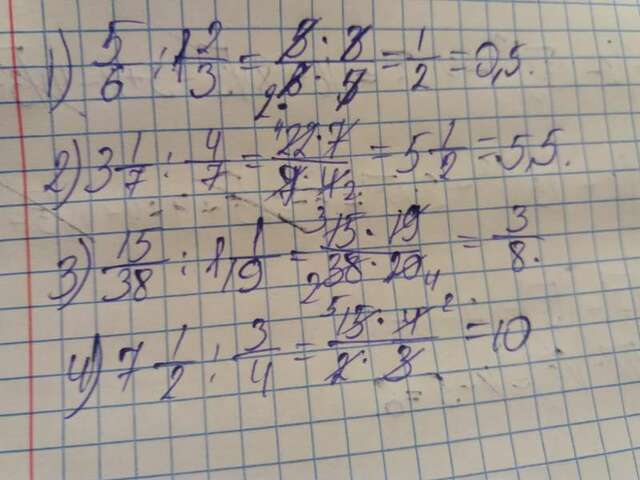 1) 5/6 : 1 2/3 = 5·3/6·5 = 1/2 = 0,5.
2) 3 1/7 : 4/7 = 22·7/7·4 = 5 1/2 = 5,5.
3) 15/38 : 1 1/19 = 15·19/38·20 = 3/8.
4) 7 1/2 : 3/4 = 15·4/2·3 = 10